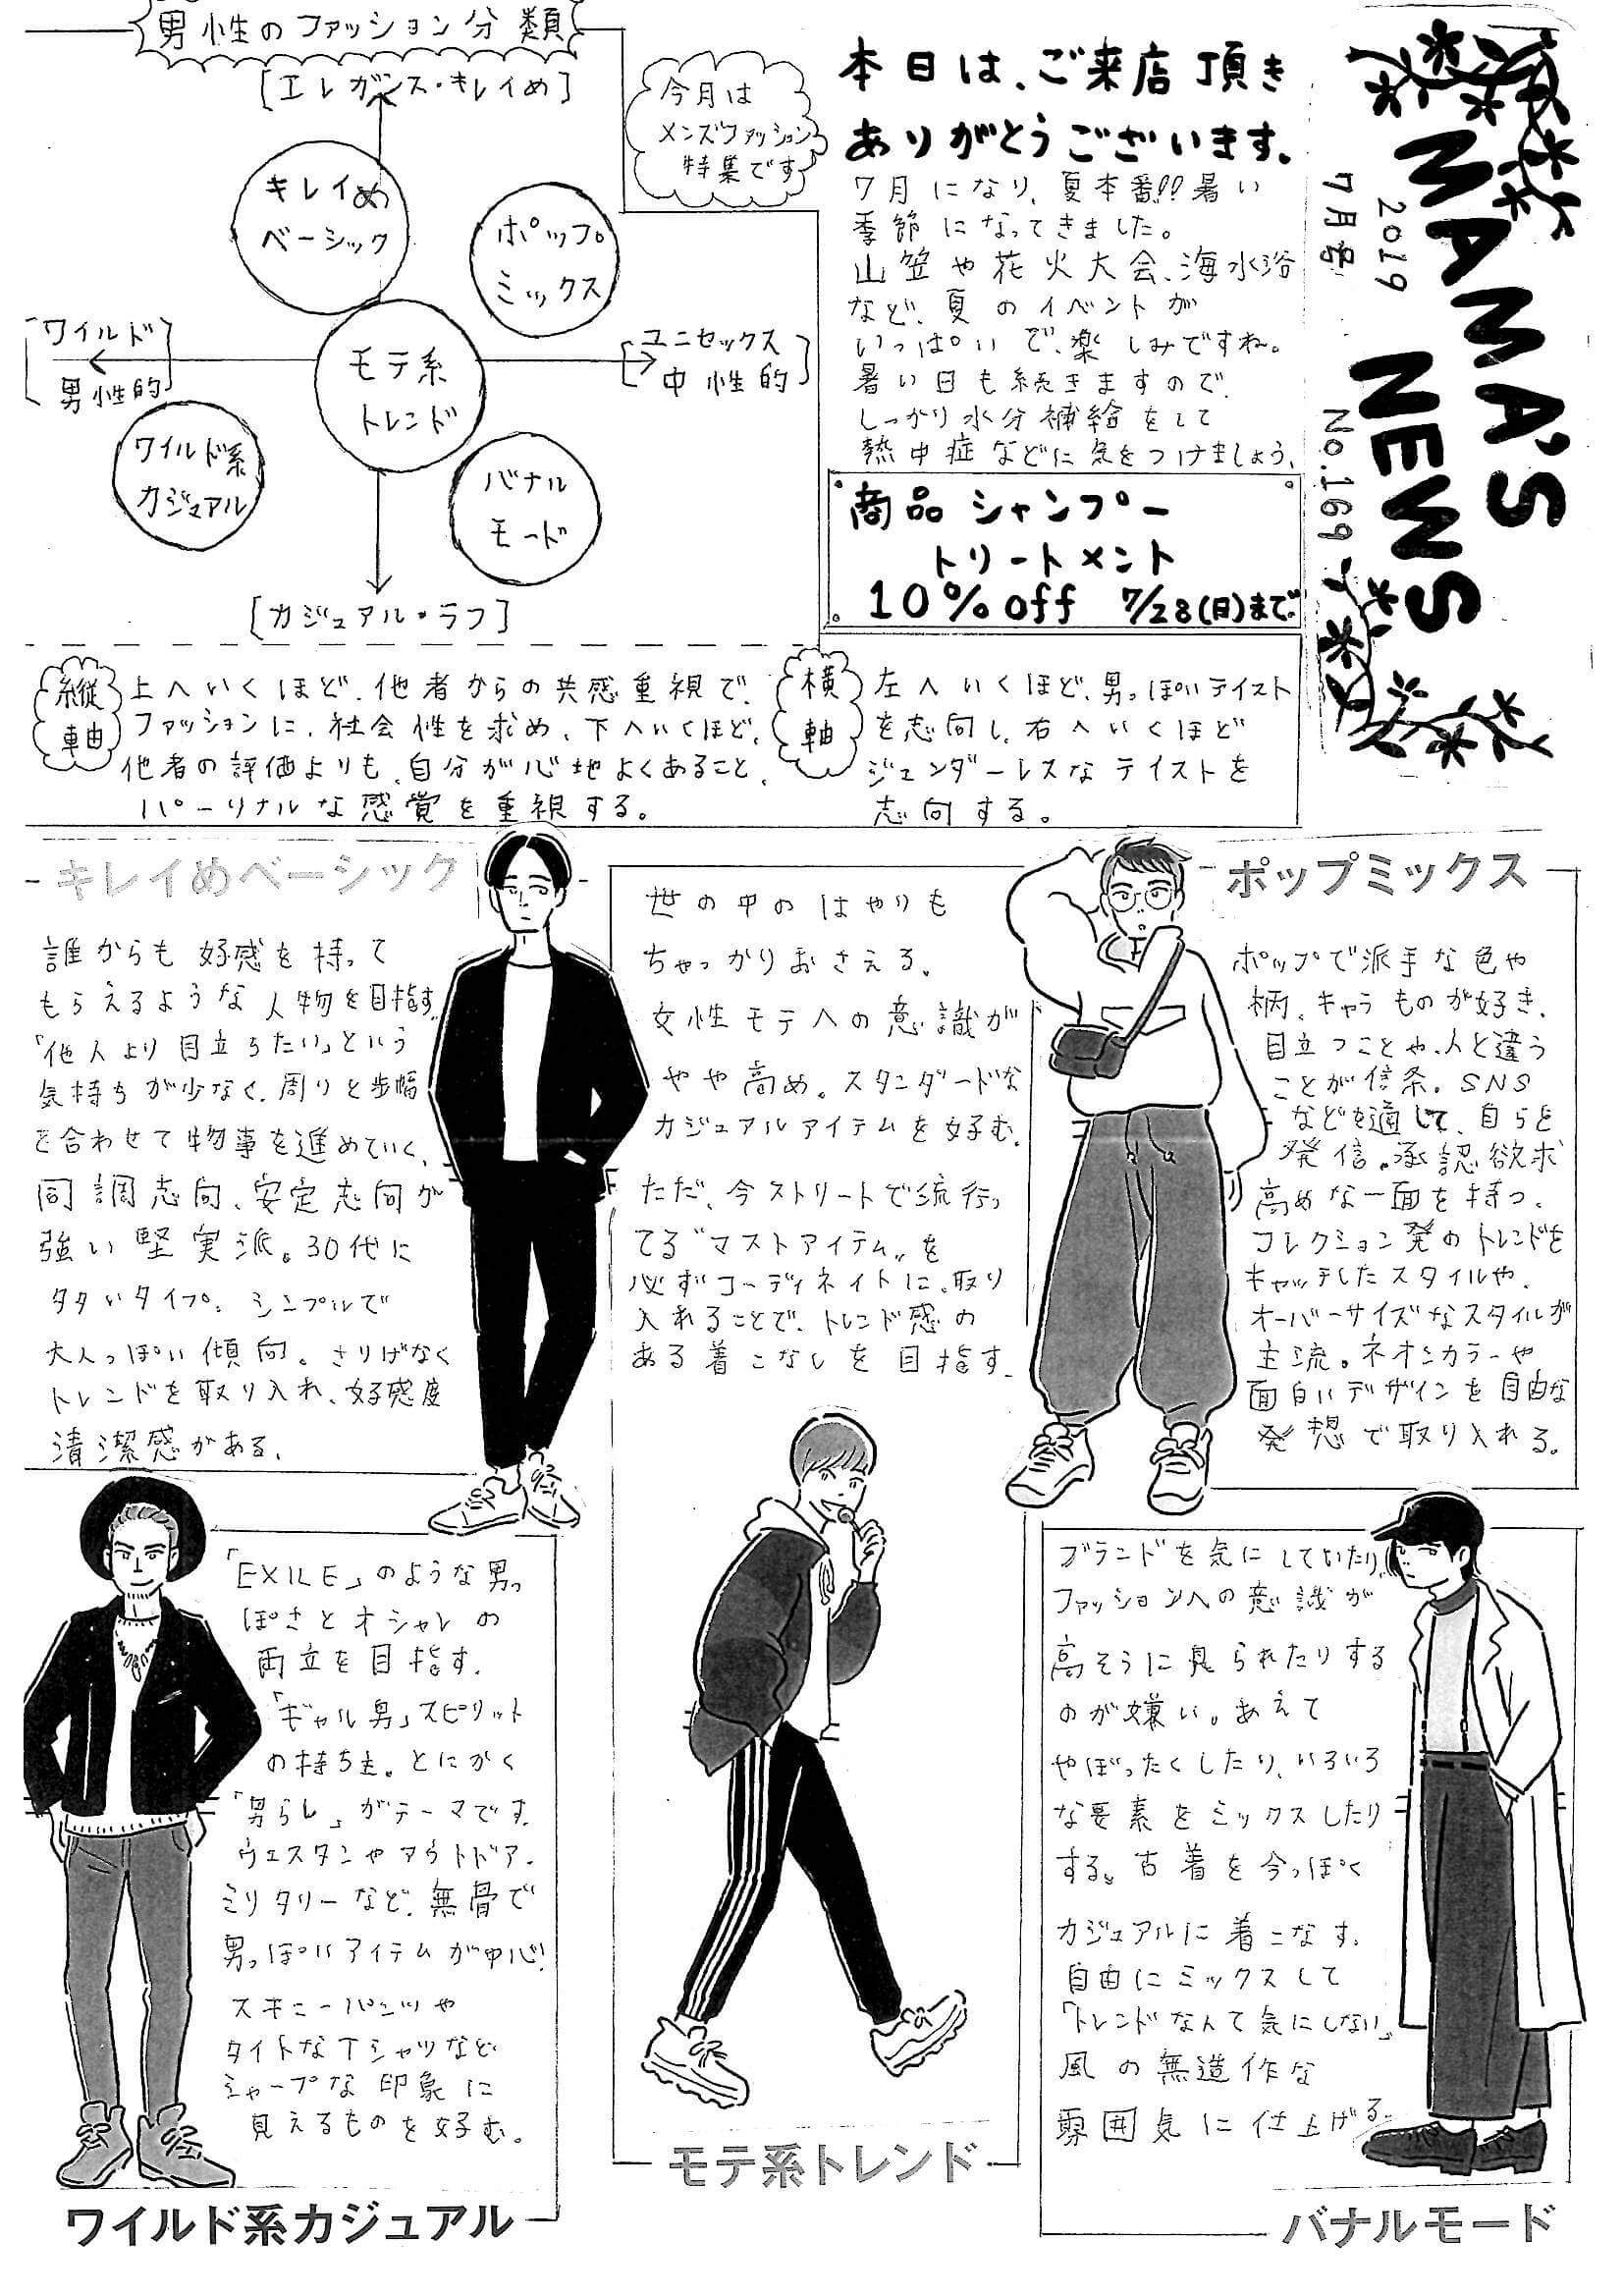 MAMA'S
NEWS
2019
7月号
No.169
本日は、ご来店頂き
ありがとうございます。
7月になり、夏本番!!暑い
季節になってきました。
山笠や花火大会、海水浴
など、夏のイベントが
いっぱいで、楽しみですね。
暑い日も続きますので、
しっかり水分補給をして
熱中症などに気をつけましょう。
商品 シャンプー
トリートメント
10%off 7/28(日)まで
今月は
メンズファッション
特集です
男性のファッション分類
[エレガンス・キレイめ]
キレイめ
ベーシック
ポップ
ミックス
[ワイルド
男性的]
モテ系
トレンド
[ユニセックス
中性的]
ワイルド系
カジュアル
バナル
モード
[カジュアル・ラフ]
縦
軸
上へいくほど、他者からの共感重視で、
ファッションに、社会性を求め、下へいくほど、
他者の評価よりも、自分が心地よくあること、
パーソナルな感覚を重視する。
横
軸
左へいくほど、男っぽいテイスト
を志向し、右へいくほど
ジェンダーレスなテイストを
志向する。
キレイめベーシック
誰からも好感を持って
もらえるような人物を目指す。
「他人より目立ちたい」という
気持ちが少なく、周りと歩幅
を合わせて物事を進めていく、
同調志向、安定志向が
強い堅実派。30代に
多いタイプ。シンプルで
大人っぽい傾向。さりげなく
トレンドを取り入れ、好感度
清潔感がある。
世の中のはやりも
ちゃっかりおさえる。
女性モテへの意識が
やや高め。スタンダードな
カジュアルアイテムを好む。
ただ、今ストリートで流行っ
てる"マストアイテム"を
必ずコーディネイトに、取り
入れることで、トレンド感の
ある着こなしを目指す。
モテ系トレンド
ポップミックス
ポップで派手な色や
柄、キャラものが好き、
目立つことや、人と違う
ことが信条。SNS
などを通じて、自らを
発信。承認欲求
高めな一面を持つ、
コレクション発のトレンドを
キャッチしたスタイルや、
オーバーサイズなスタイルが
主流。ネオンカラーや
面白いデザインを自由な
発想で取り入れる。
「EXILE」のような男っ
ぽさとオシャレの
両立を目指す。
「ギャル男」スピリット
の持ち主。とにかく
「男らし」がテーマです。
ウェスタンやアウトドア、
ミリタリーなど、無骨で
男っぽいアイテムが中心!
スキニーパンツや
タイトなTシャツなど
シャープな印象に
見えるものを好む。
ワイルド系カジュアル
ブランドを気にしていたり、
ファッションへの意識が
高そうに見られたりする
のが嫌い。あえて
やぼったくしたり、いろいろ
な要素をミックスしたり
する。古着を今っぽく
カジュアルに着こなす。
自由にミックスして
「トレンドなんて気にしない」
風の無造作な
雰囲気に仕上げる。
バナルモード